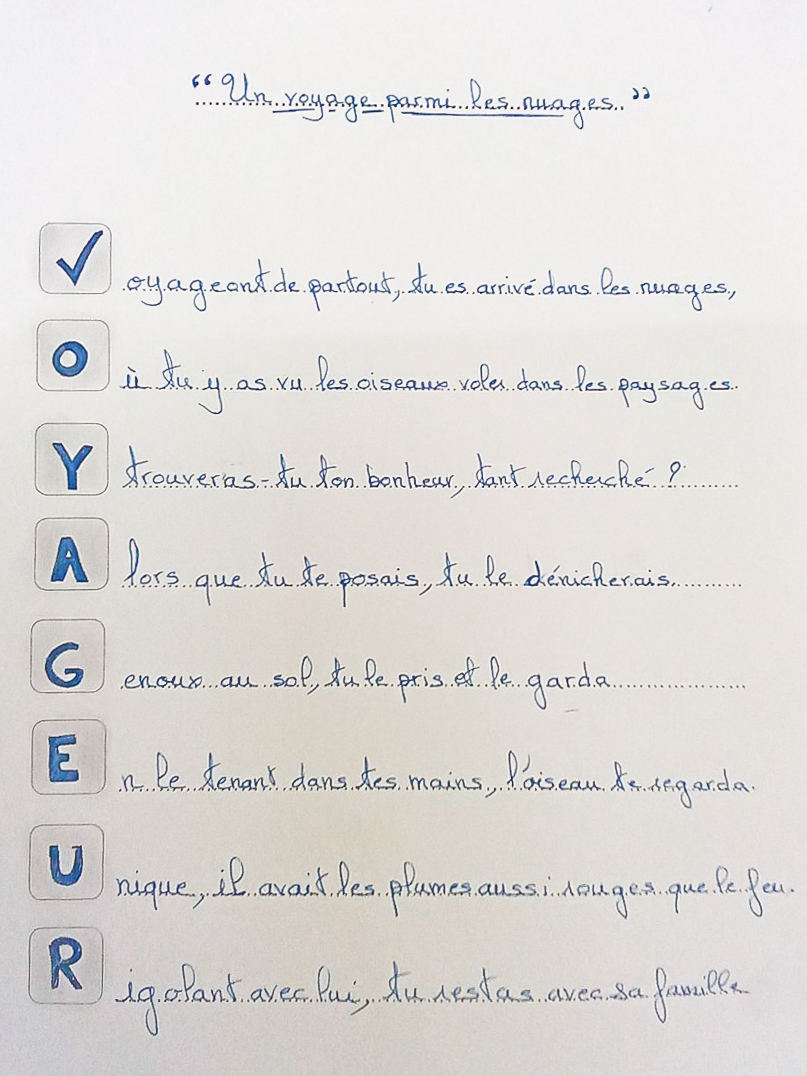 “Un voyage parmi les nuages.”
Voyageant de partout, tu es arrivé dans les nuages,
Où tu y as vu les oiseaux voler dans les paysages.
Y trouveras-tu ton bonheur, tant recherché ?
Alors que tu te posais, tu le dénicherais.
Genoux au sol, tu le pris et le garda
En le tenant dans tes mains, l'oiseau te regarda.
Unique, il avait les plumes aussi rouges que le feu.
Rigolant avec lui, tu restas avec sa famille